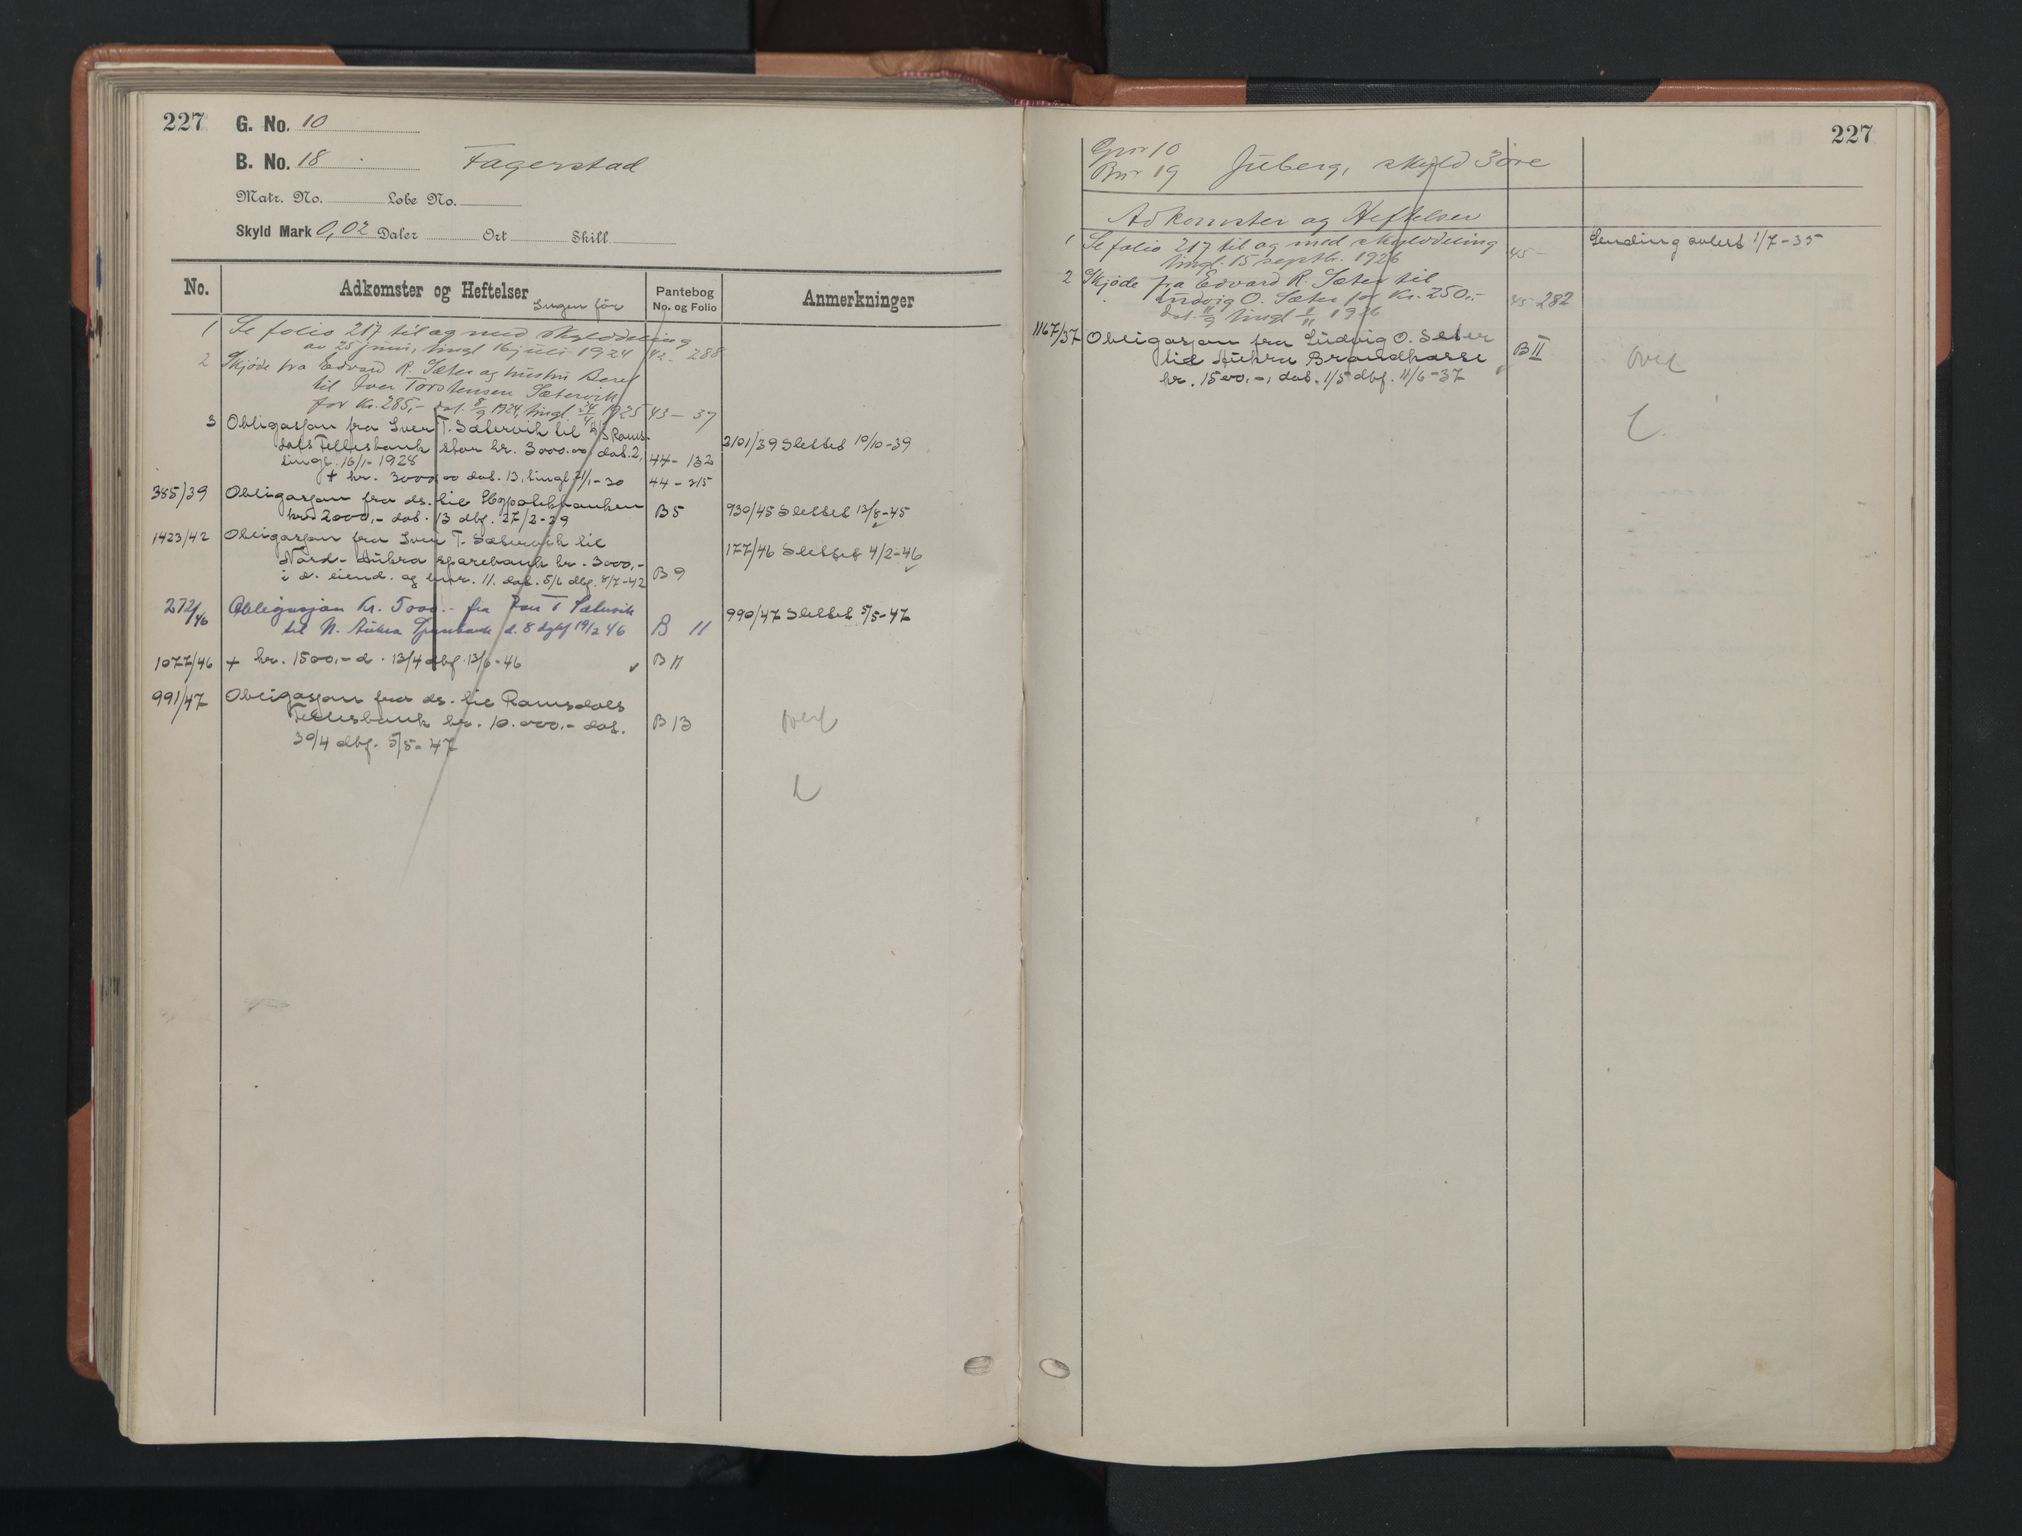 227
G. No. 10
B. No. 18 Fagerstad
Matr. No. Løbe No.
Skyld Mark 0,02 Daler Ort Skill
No. Adkomster og Heftelser Pantebog No. og Folio Anmerkninger
Ingen før
1 Se folio 217 til og med skylddeling
av 25 juni, tingl 16 juli 1924 42 - 288
2 Skjøde fra Edvard R. Sæter og hustru Berel
til Iver Torstensen Sætervik
for Kr. 285,- dat. 8/9 1924, tingl. 24/4 1925 43 - 37
3 Obligasjon fra Iver T. Sætervik til A/S Rams-
dals Fellesbank stor kr. 3000.00 dat. 2, 2101/39 Slettet 10/10-39
tingl. 16/1-1928 44 - 132
+ kr. 3000,00 dat. 13, tingl. 21/1-30 44 - 215
385/39 Obligasjon fra ds. til Hypotekbanken
kr. 2000,- dat. 13 dbf. 27/2-39 B 5 930/45 Slettet 13/8-45
1423/42 Obligasjon fra Iver T. Sætervik til
Nord-Aukra sparebank kr. 3000,- 177/46 Slettet 4/2-46
i d. eiend. og bnr. 11. dat. 5/6 dbf. 8/7-42 B 9
272/46 Obligasjon Kr. 5000.- fra Iver T Sætervik 990/47 Slettet 5/5-47
til N. Aukra Sparebank d. 8 dgbf 19/2 46 B 11
1077/46 + kr. 1500,- d. 13/4 dbf. 13/6-46 B 11
991/47 Obligasjon fra ds. til Ramsdals
Fellesbank kr. 10.000,- dat. B 13 ovf
30/4 dbf. 5/5-47
227
Gnr 10
Bnr 19 Juberg, skyld 3 øre
Adkomster og Heftelser
1 Se folio 217 til og med skylddeling 45 - Sending avlest 1/7-35
tingl. 15 septbr. 1926
2 Skjøde fra Edvard R. Sæter til
Ludvig O. Sæter for Kr. 250,- 45-282
dat. 11/9 tingl 8/11 1926
1167/37 Obligasjon fra Ludvig O. Seter
til Aukra Brandkasse B II ovf
kr. 1500,-, dat. 1/5 dbf. 11/6-37